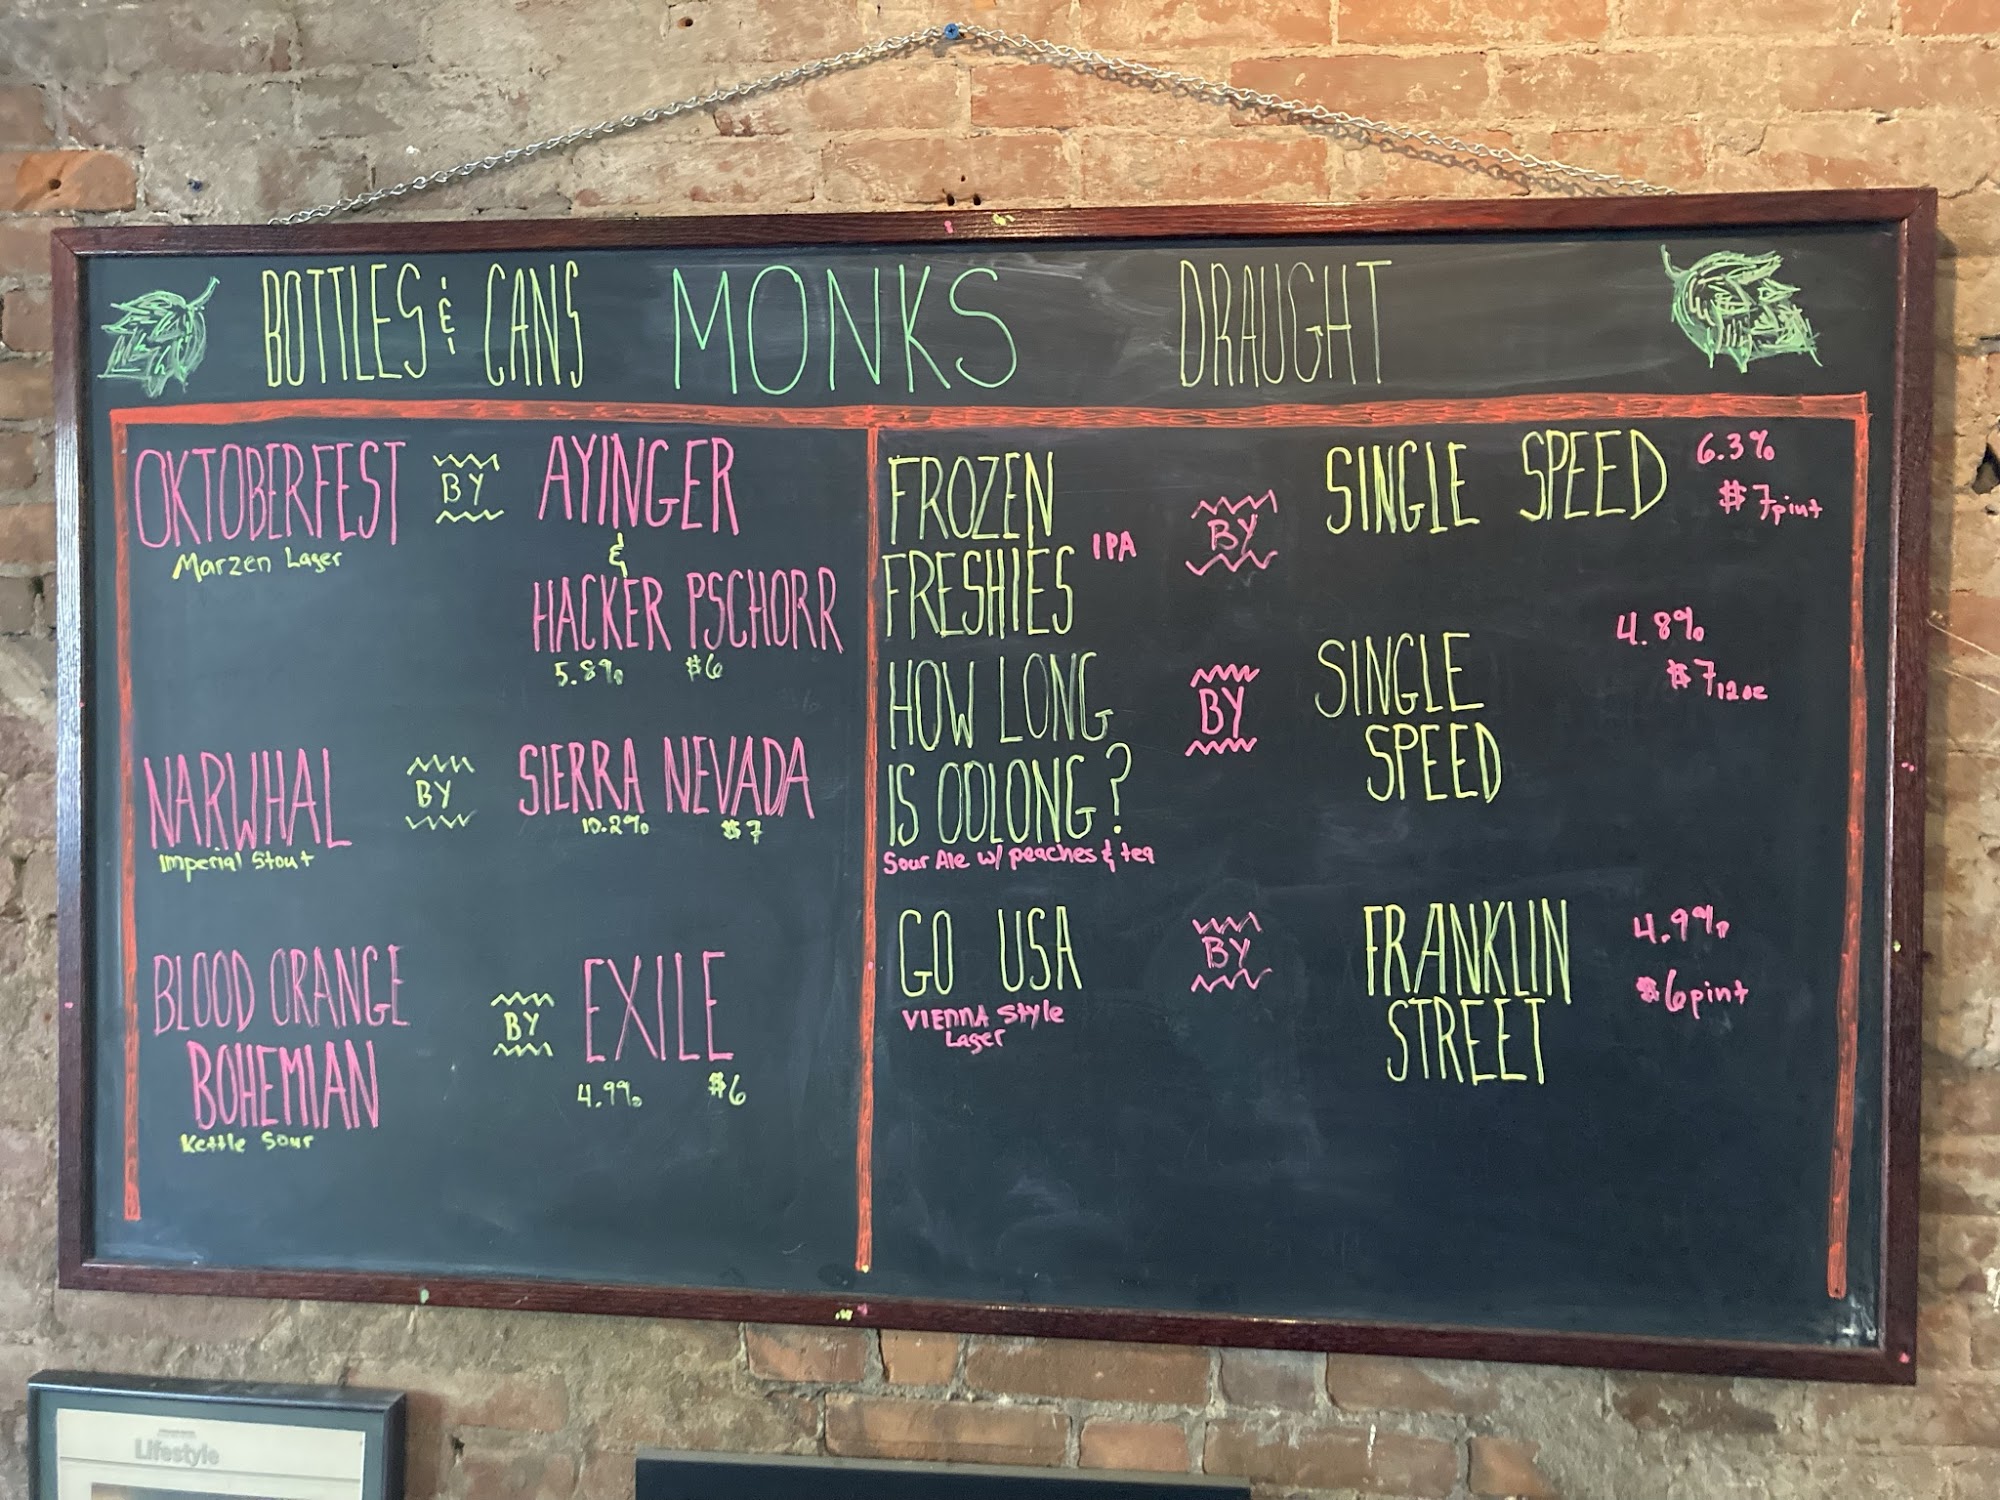 BOTTLES & CANS MONKS DRAUGHT
OKTOBERFEST BY AYINGER
Marzen Lager
&
HACKER PSCHORR
5.8% $6
NARWHAL BY SIERRA NEVADA
Imperial Stout
10.2% $7
BLOOD ORANGE
BOHEMIAN
BY EXILE
Kettle Sour
4.9% $6
FROZEN
FRESHIES IPA
BY SINGLE SPEED
6.3%
$7 pint
HOW LONG
IS OOLONG?
Sour Ale w/ peaches & tea
BY SINGLE
SPEED
4.8%
$7 12oz
GO USA BY FRANKLIN
STREET
VIENNA Style
Lager
4.9%
$6 pint
Lifestyle